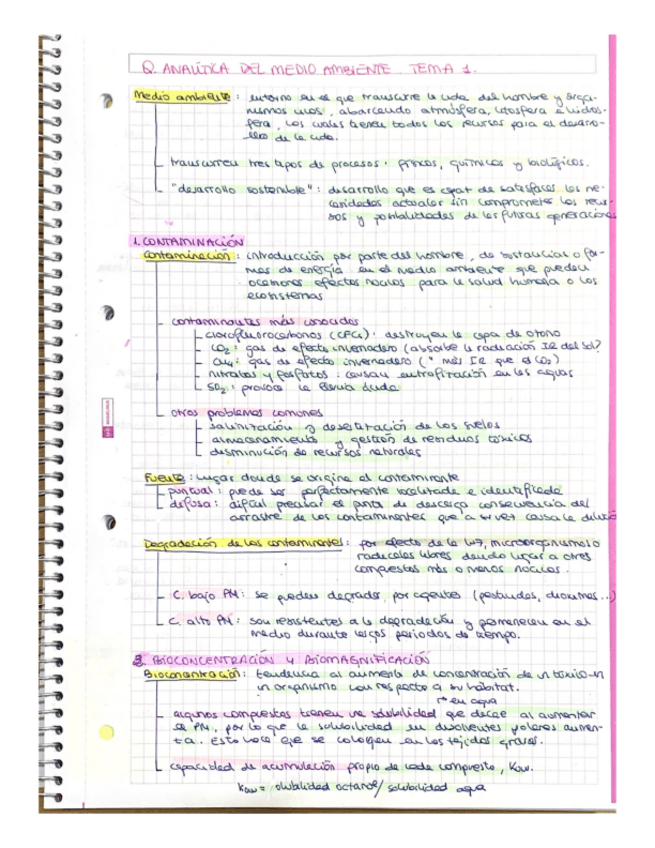 Q. ANALÍTICA DEL MEDIO AMBIENTE. TEMA 1.
Medio ambiente: entorno en el que transcurre la vida del hombre y orga-
nismos vivos, abarcando atmósfera, litosfera e hidos-
fera, los cuales tienen todos los recursos para el desarro-
llo de la vida.
transcurren tres tipos de procesos: físicos, químicos y biológicos.
"desarrollo sostenible": desarrollo que es capaz de satisfacer las ne-
cesidades actuales sin comprometer los recur-
sos y posibilidades de las futuras generaciones
1. CONTAMINACIÓN
Contaminación: introducción por parte del hombre, de sustancias o for-
mas de energía en el medio ambiente que pueden
ocasionar efectos nocivos para la salud humana o los
ecosistemas
contaminantes más conocidos
clorofluorocarbonos (CFCs): destruyen la capa de ozono
CO2: gas de efecto invernadero (absorbe la radiación IR del sol)
CH4: gas de efecto invernadero (" más IR que el CO2)
nitratos y fosfatos: causan eutrofización en las aguas
SO2: provoca la lluvia ácida
otros problemas comunes
salinización y desertización de los suelos
almacenamiento y gestión de residuos tóxicos
disminución de recursos naturales
Fuente: lugar donde se origina el contaminante
puntual: puede ser perfectamente localizada e identificada
difusa: difícil precisar el punto de descarga consecuencia del
arrastre de los contaminantes que a su vez causa la dilución
Degradación de los contaminantes: por efecto de la luz, microorganismos o
radicales libres dando lugar a otros
compuestos más o menos nocivos.
C. bajo PM: se pueden degradar por agentes (pesticidas, dioxinas...)
C. alto PM: son resistentes a la degradación y permanecen en el
medio durante largos periodos de tiempo.
2. BIOCONCENTRACIÓN Y BIOMAGNIFICACIÓN
Bioconcentración: tendencia al aumento de concentración de un tóxico en
un organismo con respecto a su hábitat.
en agua
algunos compuestos tienen una solubilidad que decae al aumentar
el PM, por lo que la solubilidad en disolventes polares aumen-
ta. Esto hace que se coloquen en los tejidos grasos.
capacidad de acumulación propio de cada compuesto, Kow.
Kow = solubilidad octanol/ solubilidad agua